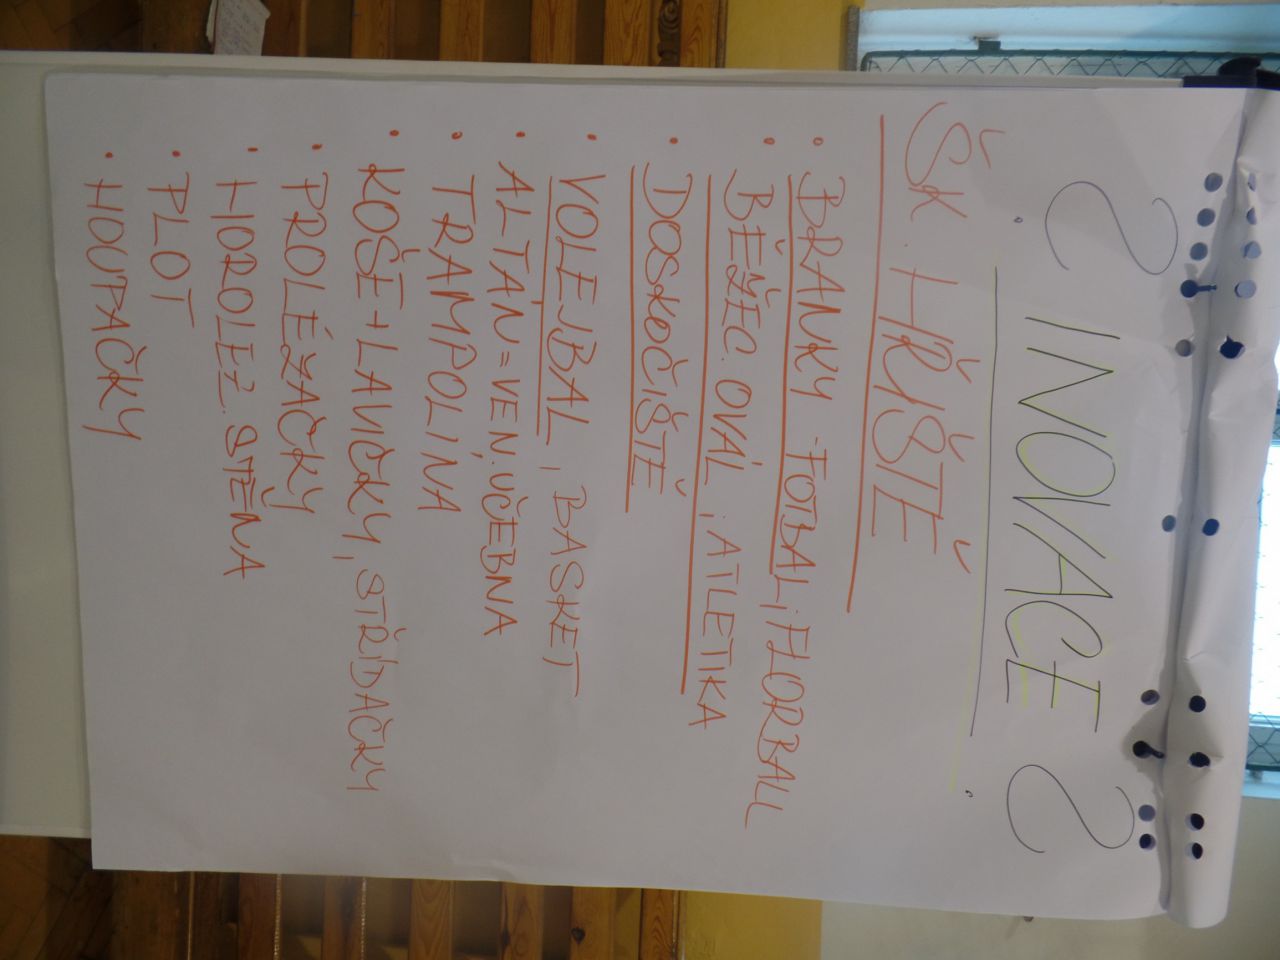 ? INOVACE ?
ŠK. HŘIŠTĚ
• BRANKY - FOTBAL, FLORBALL
• BĚŽEC. OVÁL, ATLETIKA
• DOSKOČIŠTĚ
• VOLEJBAL, BASKET
• ALTÁN = VEN. UČEBNA
• TRAMPOLÍNA
• KOŠE + LAVIČKY, STŘÍDAČKY
• PROLÉZAČKY
• HOROLEZ. STĚNA
• PLOT
• HOUPAČKY